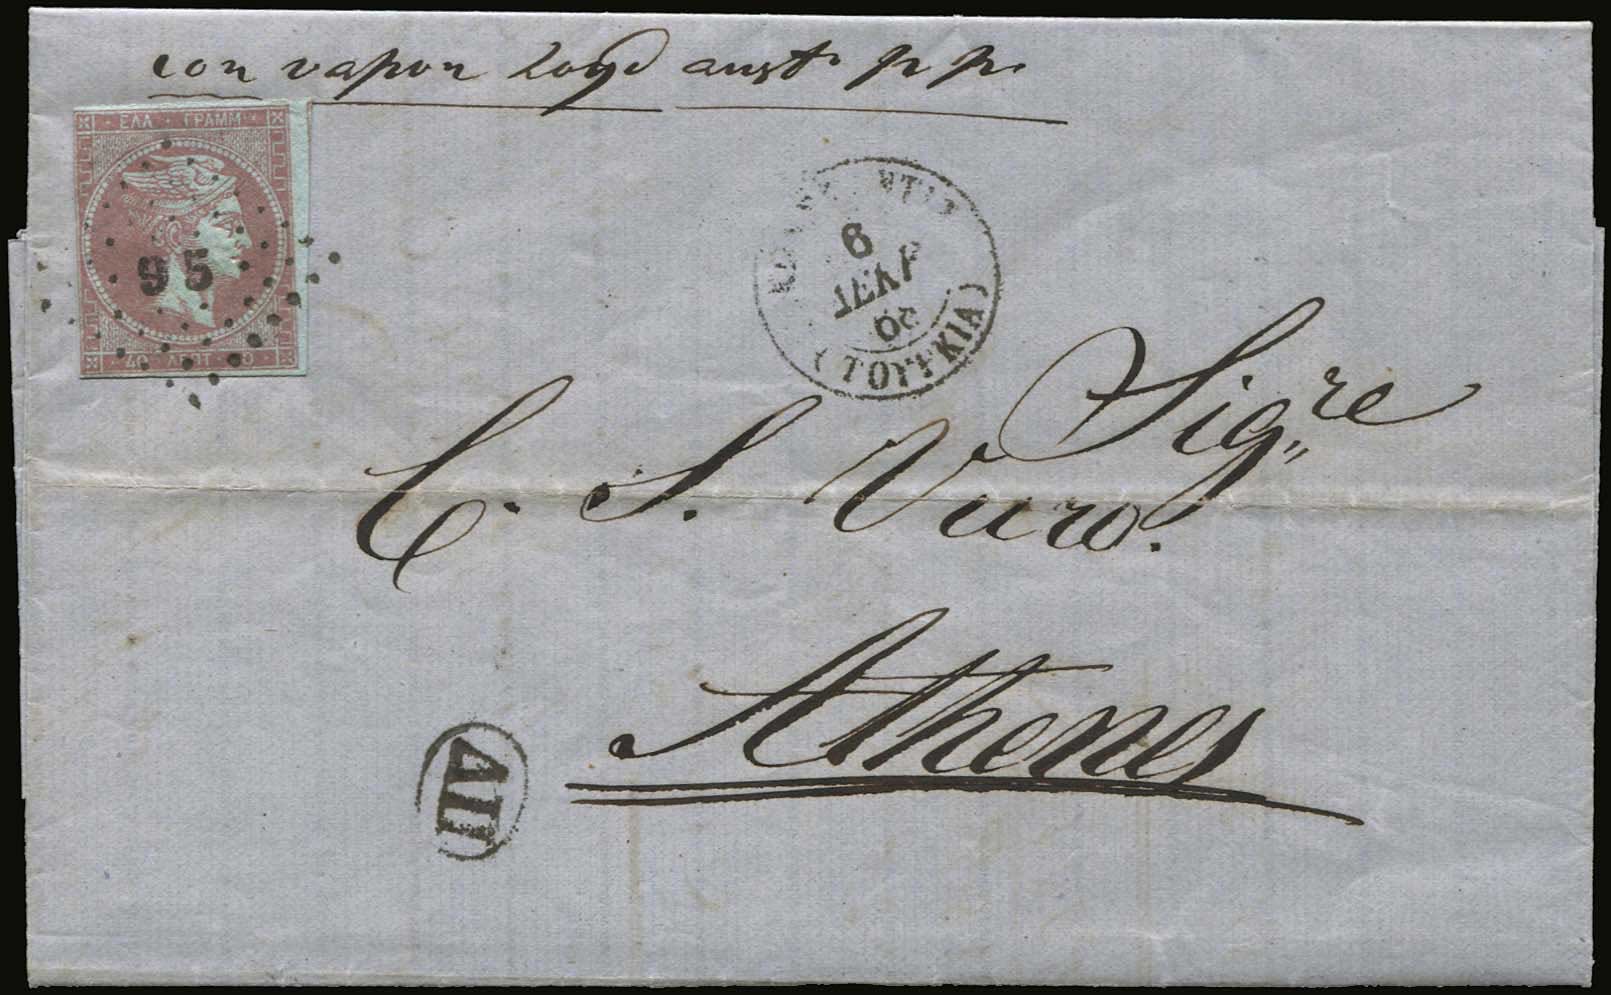 con vapor Loyd aust. p p.
ΕΛΛ · ΓΡΑΜΜ
95
40 · ΛΕΠΤ · 40
6
ΔΕΚΡ
(ΤΟΥΡΚΙΑ)
Sig.re
C. S. Vuro.
Athenes
ΑΠ